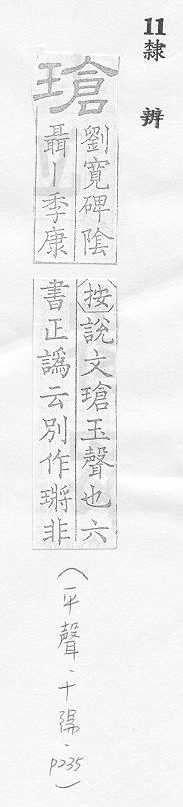 11 隸辨
瑲
劉寬碑陰
聶丨季康
按說文瑲玉聲也六
書正譌云別作㻪非
(平聲.十陽.p235)